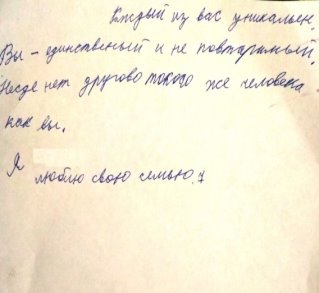 Каждый из вас уникален,
Вы - единственый и не повторимый,
Негде нет другово такого же человека
как вы.
Я
люблю свою семью.